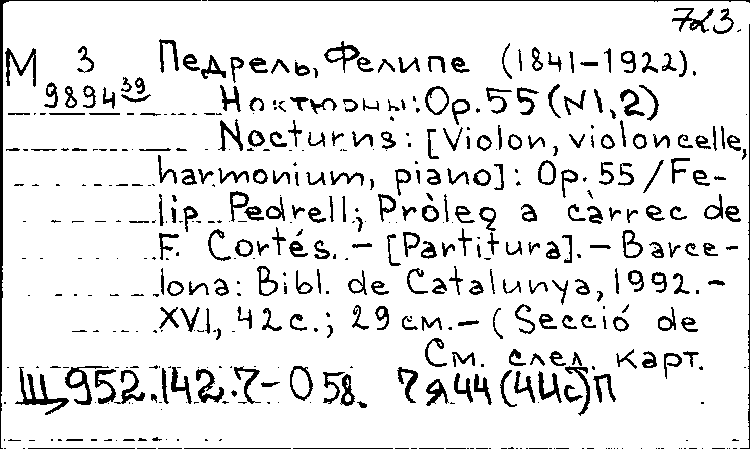 723.
М 3 Педрель, Фелипе (1841-1922).
9894 39 Ноктюрны: Op. 55 (N1,2)
Nocturns: [Violon, violoncelle,
harmonium, piano]: Op. 55 / Fe-
lip Pedrell; Pròleg a càrrec de
F. Cortés. - [Partitura]. - Barce-
lona: Bibl. de Catalunya, 1992. -
XVI, 42 с.; 29 см. - (Secció de
См. след. карт.
Щ952.142.7-О58. 7Я44(4Ис)П